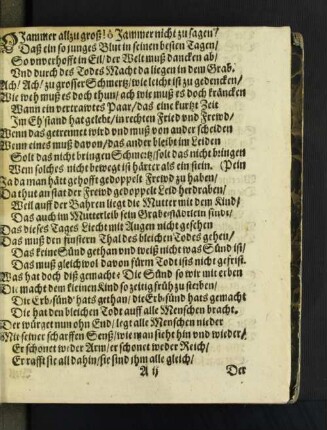 O Jammer allzu groß! ô Jammer nicht zu sagen/
Daß ein so junges Blut in seinen besten Tagen/
So vnverhofft in Eil/ der Welt muß dancken ab/
Vnd durch des Todes Macht da liegen in dem Grab.
Ach/ Ach/ zu grosser Schmertz/ wie leicht ist zu gedencken/
Wie weh muß es doch thun/ ach wie muß es doch kräncken
Wann ein vertrawtes Paar/ das eine kurtze Zeit
Im Eh'stand hat gelebt/ in rechten Fried vnd Frewd/
Wenn das getrennet wird vnd muß von ander scheiden
Wenn eines muß davon/ das ander bleibt im Leiden
Solt das nicht bringen Schmertz/ solt das nicht bringen
Wem solches nicht bewegt ist härter als ein stein. (Pein
Ja da man hätt gehofft gedoppelt Frewd zu haben/
Da thut an statt der Frewd gedoppelt Leid herdraben/
Weil auff der Bahren liegt die Mutter mit dem Kind/
Das auch im Mutterleib sein Grabe-städtlein find/
Das dieses Tages Liecht mit Augen nicht gesehen
Das muß den finstern Thal des bleichen Todes gehen/
Das keine Sünd gethan vnd weiß nicht was Sünd ist/
Das muß gleichwol davon fürm Todt ists nicht gefrist.
Was hat doch diß gemacht? Die Sünd so wir mit erben
Die macht dem kleinen Kind so zeitig früh zu sterben/
Die Erb-sünd hats gethan/ die Erb-sünd hats gemacht
Die hat den bleichen Todt auff alle Menschen bracht.
Der würget nun ohn End/ legt alle Menschen nieder
Mit seiner scharffen Senß/ wie man sieht hin vnd wieder/
Er schonet weder Arm/ er schonet weder Reich/
Er rafft sie all dahin/ sie sind ihm alle gleich/
A ij
Der